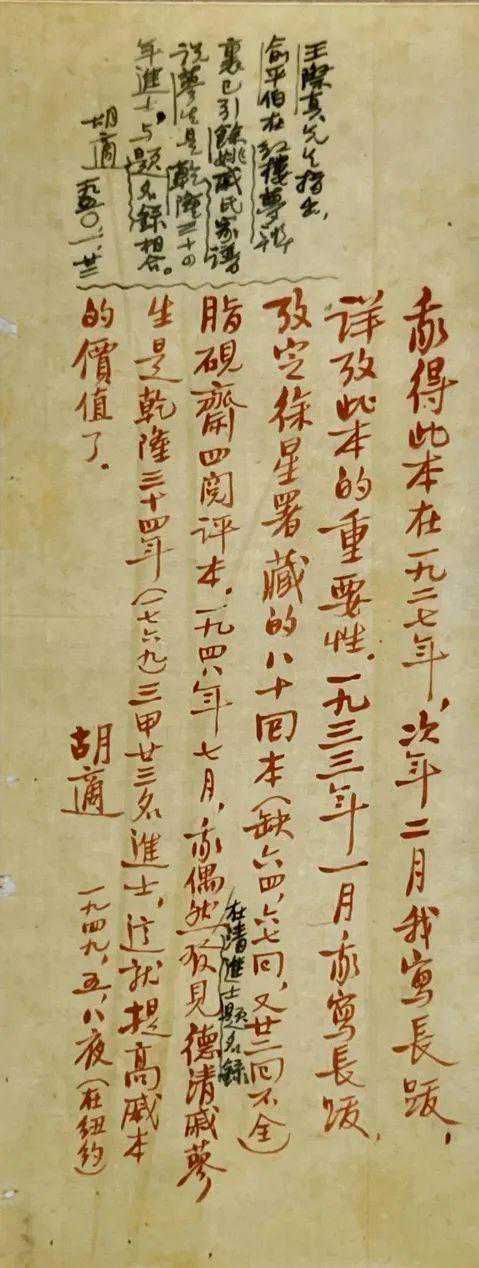 我得此本在一九二七年，次年二月我寫長跋，
詳攷此本的重要性。一九三三年一月我寫長跋，
攷定徐星署藏的八十回本（缺六四，六七回，又廿二回不全）
脂硯齋四閱評本。一九四八年七月，我偶然發見德清戚蓼
在清進士題名錄
生是乾隆三十四年（一七六九）三甲廿三名進士，這就提高戚本
的價值了。
胡適
一九四九，五，八夜（在紐約）
王際真先生指出，
俞平伯在紅樓夢辨
裏已引餘姚戚氏家譜
說蓼生是乾隆三十四
年進士，与題名錄相合。
胡適 一九五〇，一，廿三